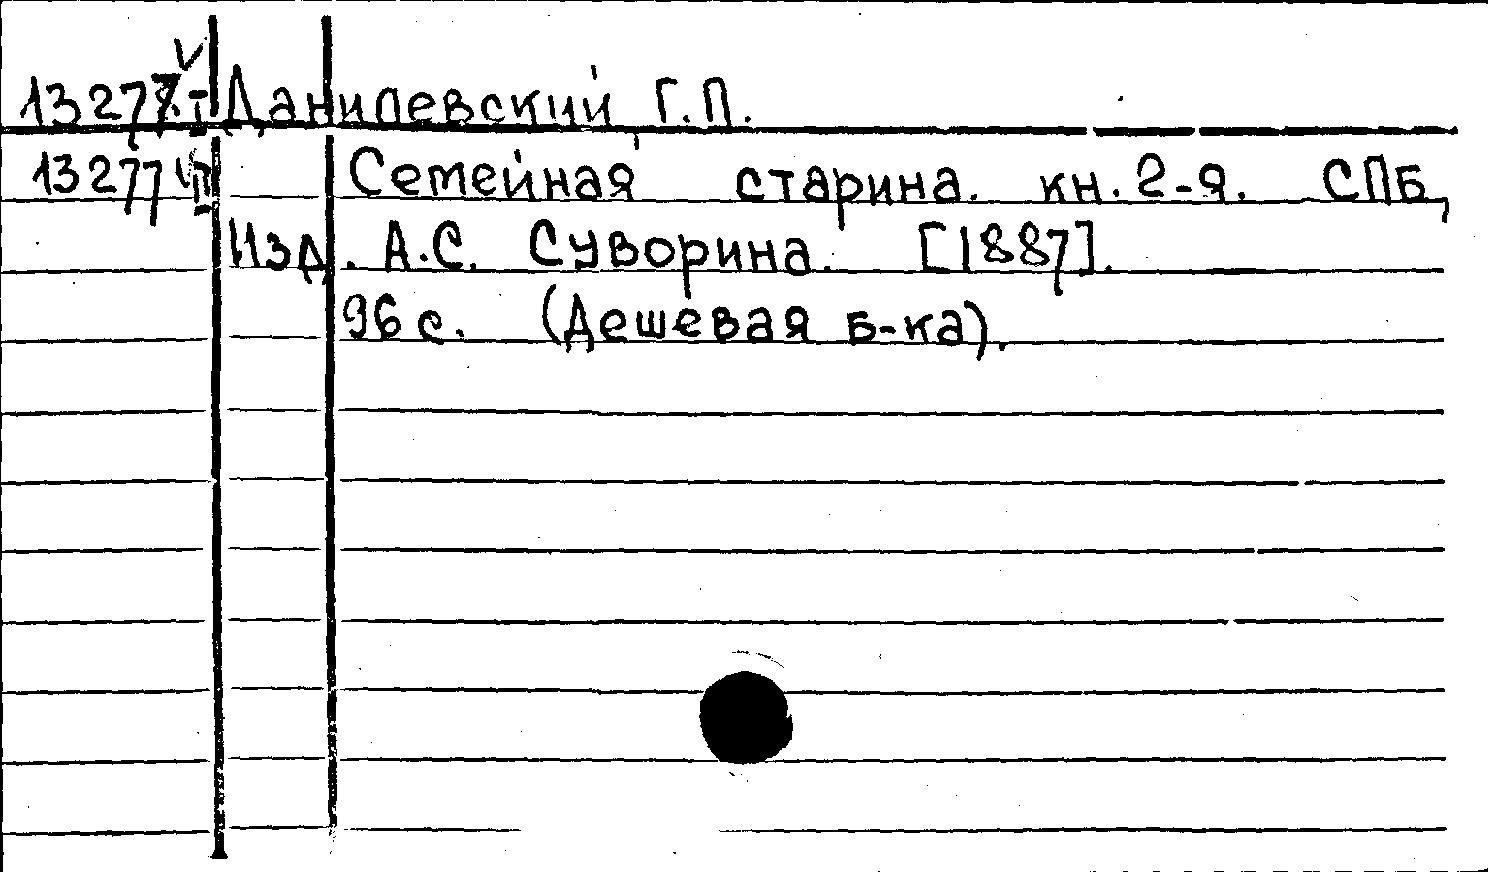 13277 I Данилевский Г.П.
13277 II Семейная старина. кн. 2-я. СПБ,
Изд. А.С. Суворина. [1887].
96 с. (Дешевая б-ка).